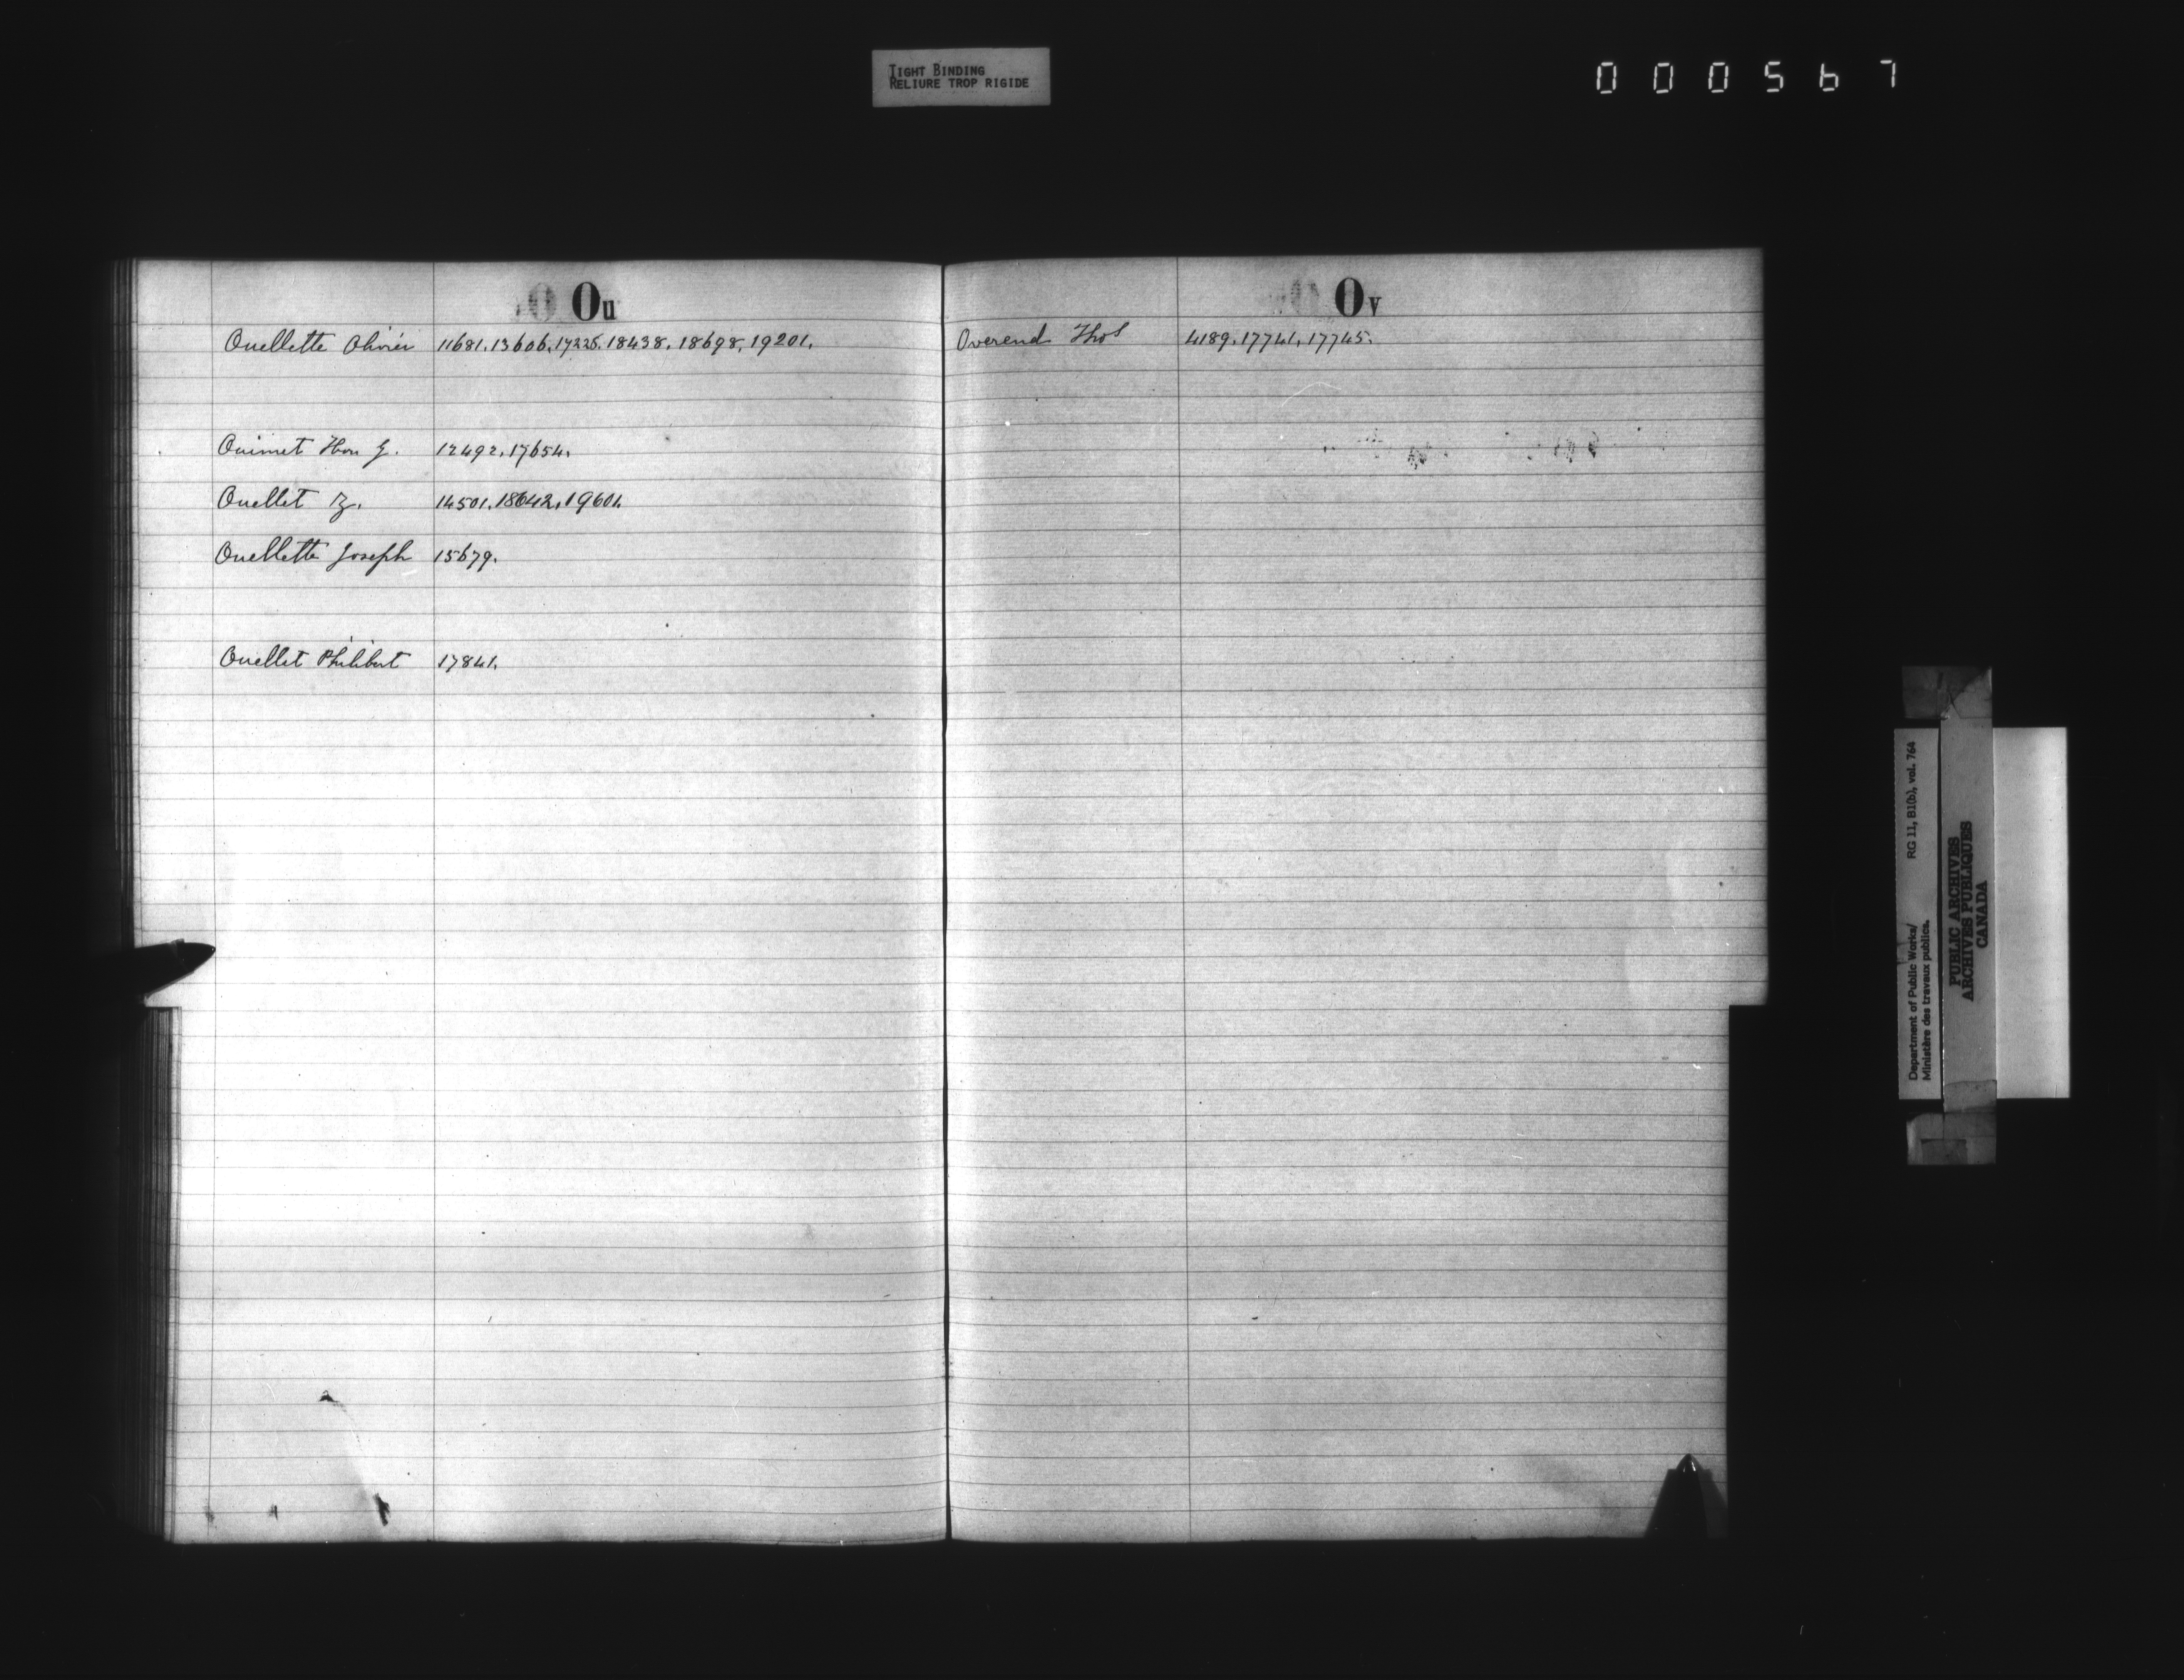 TIGHT BINDING
RELIURE TROP RIGIDE
000567
Ou
Ouellette Olivier 11681. 13606. 17226. 18438. 18698. 19201.
Ouimet Hon G. 12492. 17654.
Ouellet Iz. 14501. 18642. 19601.
Ouellette Joseph 15679.
Ouellet Philibert 17841.
Ov
Overend Thos 4189. 17741. 17745.
Department of Public Works/ RG 11, B1(b), vol. 764
Ministère des travaux publics.
PUBLIC ARCHIVES
ARCHIVES PUBLIQUES
CANADA